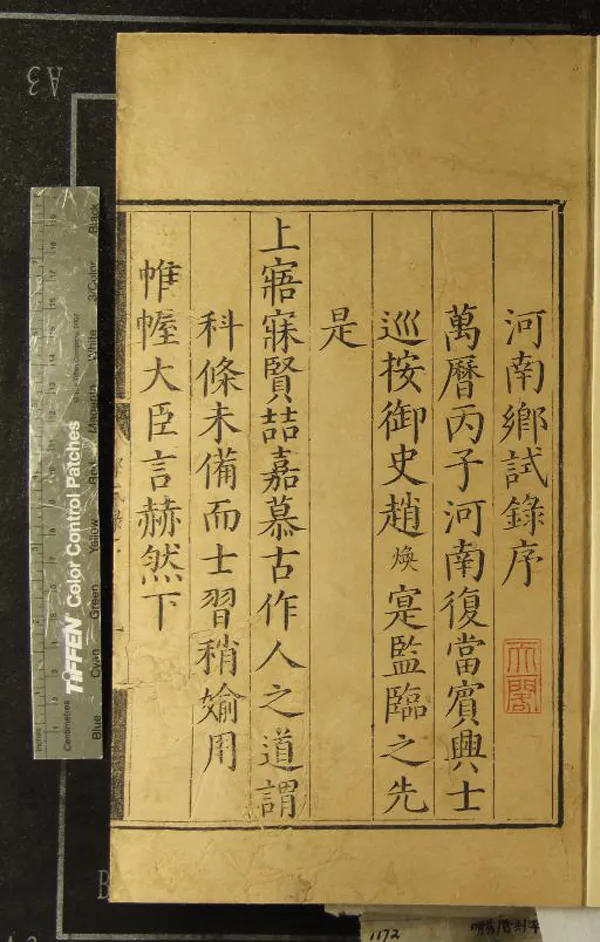 河南鄉試錄序
天閣
萬曆丙子河南復當賓興士
巡按御史趙煥寔監臨之先
是
上寤寐賢喆嘉慕古作人之道謂
科條未備而士習稍媮用
帷幄大臣言赫然下
A3
TIFFEN Color Control Patches
© The Tiffen Company, 2007
Centimetres
Inches
Blue
Cyan
Green
Yellow
Red
Magenta
White
3/Color
Black
B
1172